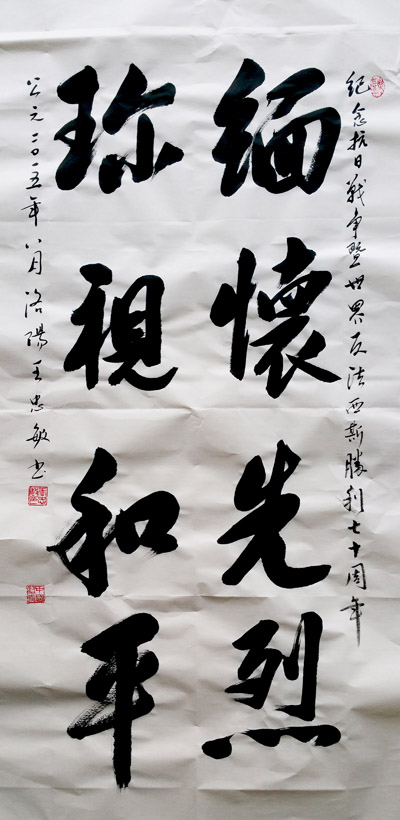 紀念抗日戰争暨世界反法西斯勝利七十周年
緬懷先烈
珍視和平
公元二〇一五年八月洛陽王忠敏书